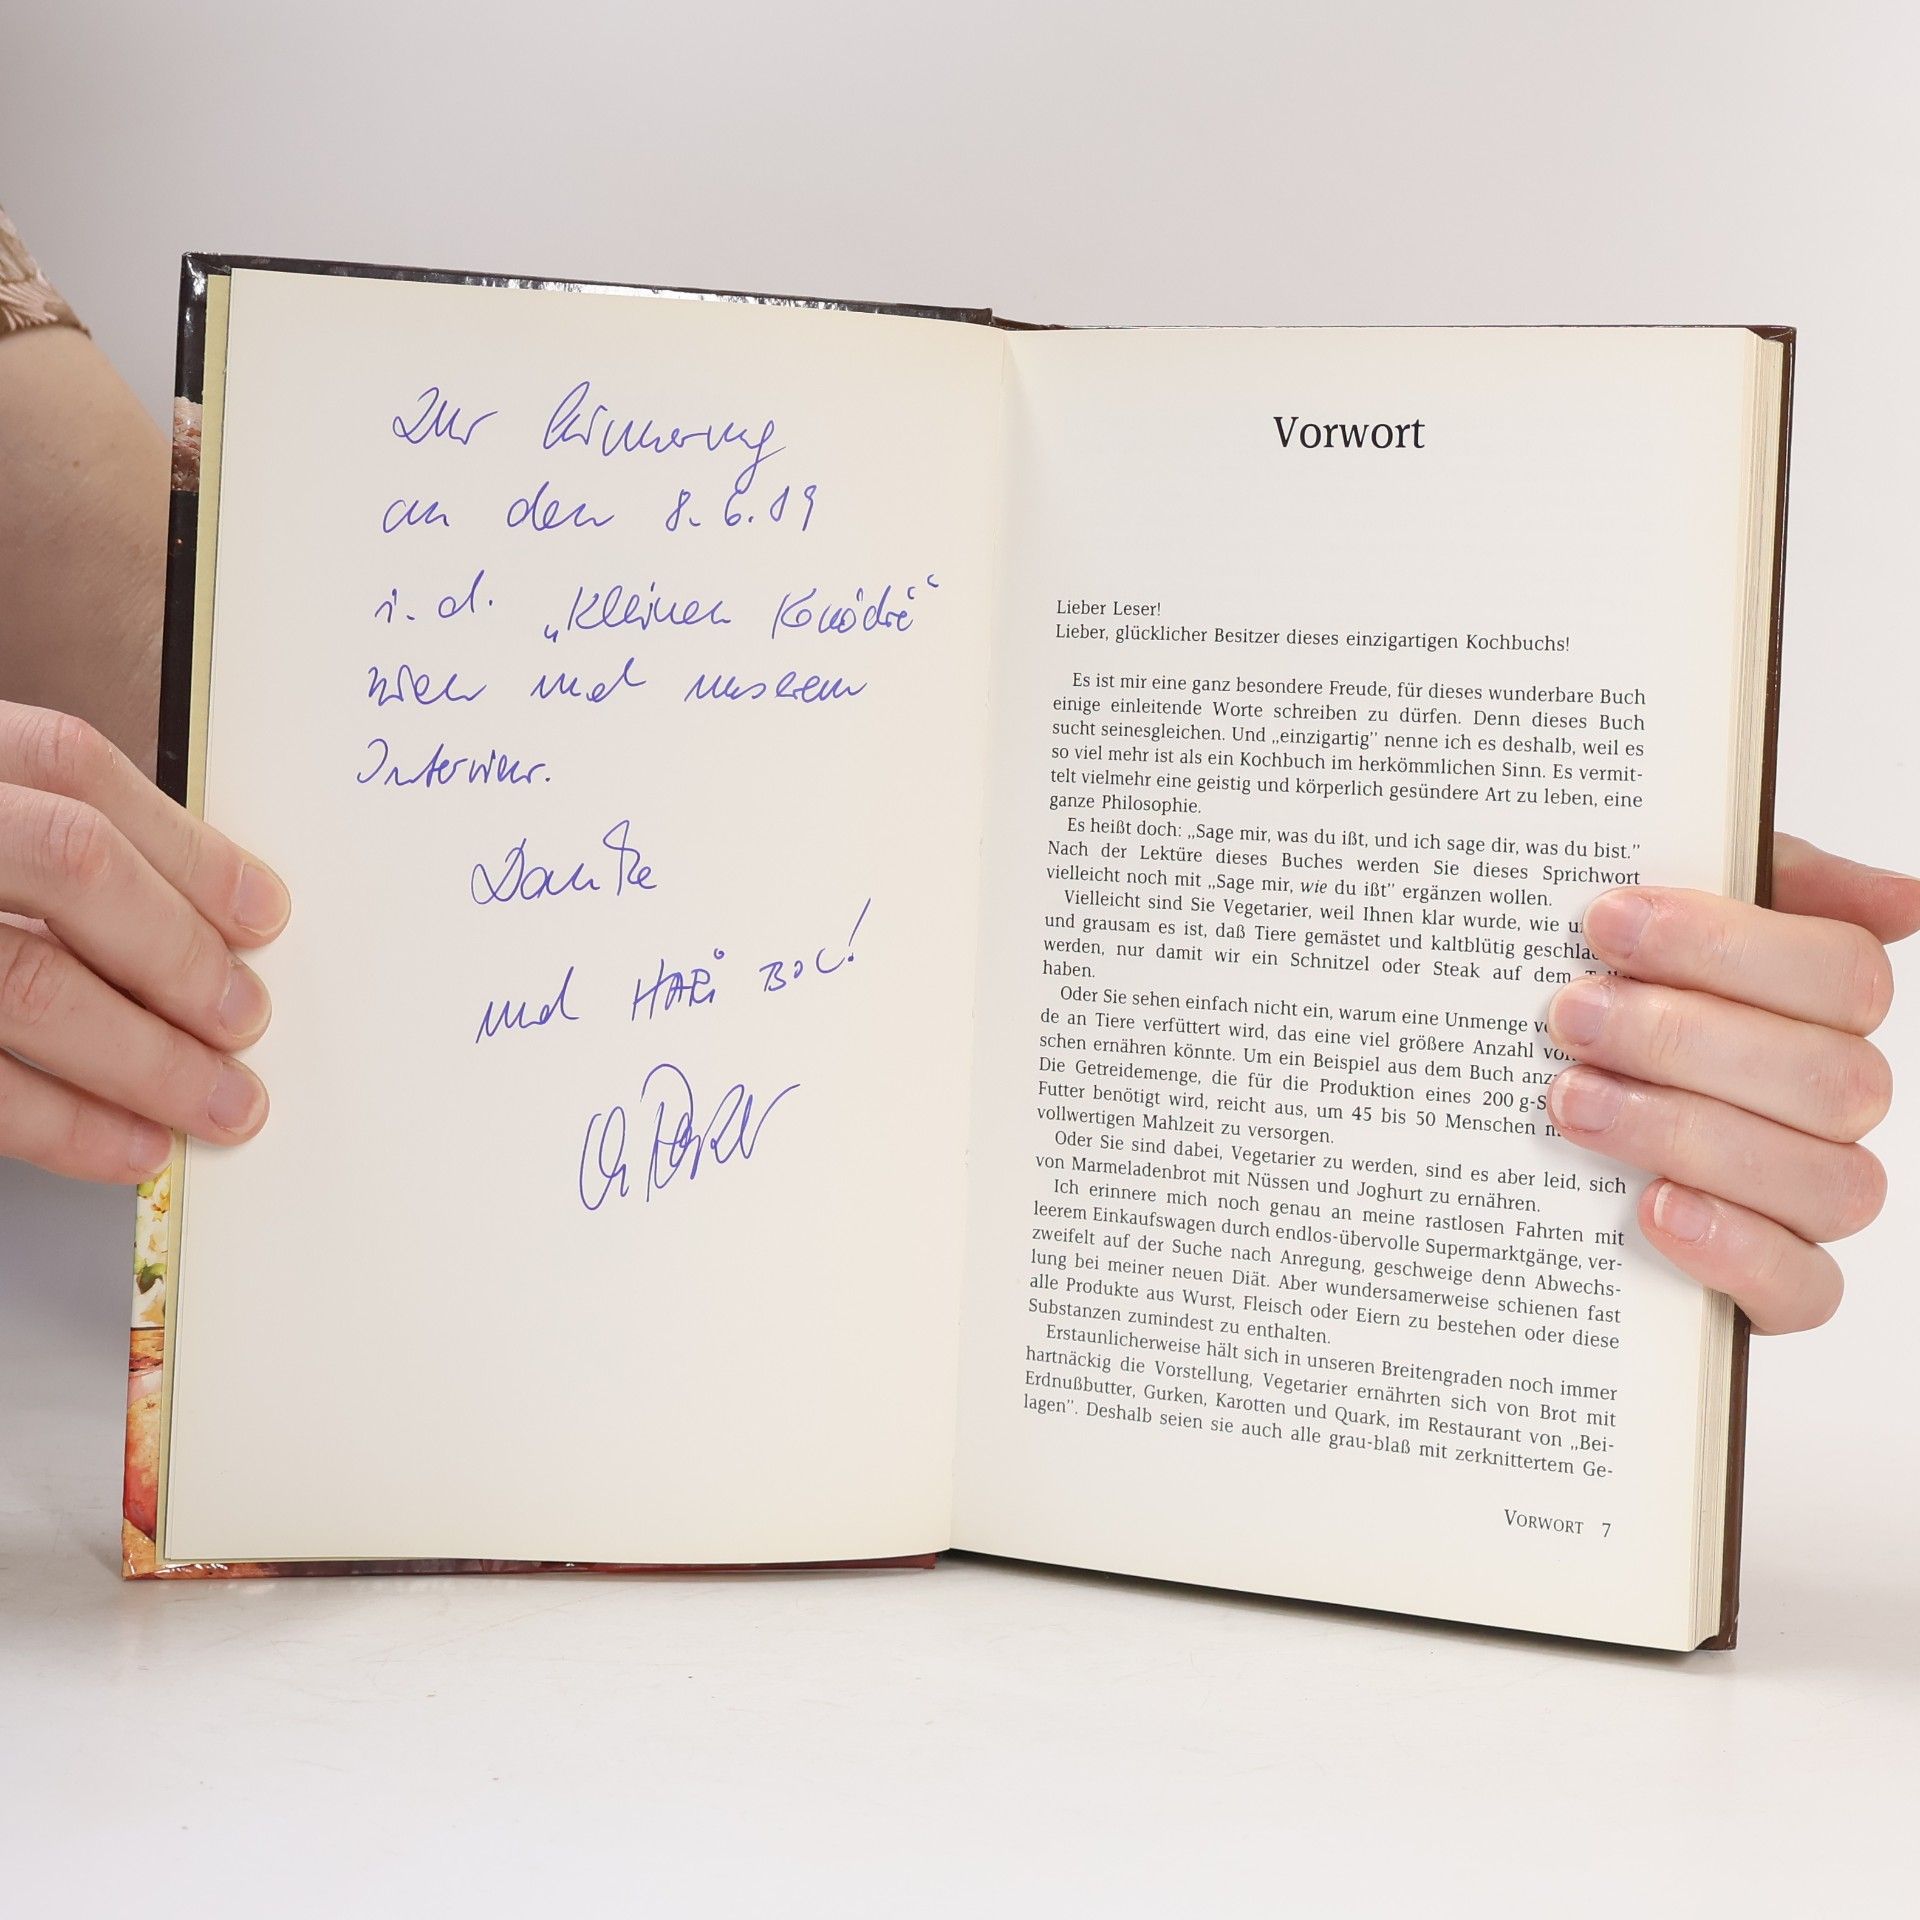 Zur Erinnerung
an den 8.6.19
i. d. „Kleinen Komödie“
Wien und unserem
Interview.
Danke
und HARi BOL!
Vorwort
Lieber Leser!
Lieber, glücklicher Besitzer dieses einzigartigen Kochbuchs!
Es ist mir eine ganz besondere Freude, für dieses wunderbare Buch
einige einleitende Worte schreiben zu dürfen. Denn dieses Buch
sucht seinesgleichen. Und „einzigartig” nenne ich es deshalb, weil es
so viel mehr ist als ein Kochbuch im herkömmlichen Sinn. Es vermit-
telt vielmehr eine geistig und körperlich gesündere Art zu leben, eine
ganze Philosophie.
Es heißt doch: „Sage mir, was du ißt, und ich sage dir, was du bist.”
Nach der Lektüre dieses Buches werden Sie dieses Sprichwort
vielleicht noch mit „Sage mir, wie du ißt” ergänzen wollen.
Vielleicht sind Sie Vegetarier, weil Ihnen klar wurde, wie
und grausam es ist, daß Tiere gemästet und kaltblütig
werden, nur damit wir ein Schnitzel oder Steak auf dem
haben.
Oder Sie sehen einfach nicht ein, warum eine Unmenge
de an Tiere verfüttert wird, das eine viel größere Anzahl
schen ernähren könnte. Um ein Beispiel aus dem Buch
Die Getreidemenge, die für die Produktion eines 200 g-S
Futter benötigt wird, reicht aus, um 45 bis 50 Menschen
vollwertigen Mahlzeit zu versorgen.
Oder Sie sind dabei, Vegetarier zu werden, sind es aber leid, sich
von Marmeladenbrot mit Nüssen und Joghurt zu ernähren.
Ich erinnere mich noch genau an meine rastlosen Fahrten mit
leerem Einkaufswagen durch endlos-übervolle Supermarktgänge, ver-
zweifelt auf der Suche nach Anregung, geschweige denn Abwechs-
lung bei meiner neuen Diät. Aber wundersamerweise schienen fast
alle Produkte aus Wurst, Fleisch oder Eiern zu bestehen oder diese
Substanzen zumindest zu enthalten.
Erstaunlicherweise hält sich in unseren Breitengraden noch immer
hartnäckig die Vorstellung, Vegetarier ernährten sich von Brot mit
Erdnußbutter, Gurken, Karotten und Quark, im Restaurant von „Bei-
lagen”. Deshalb seien sie auch alle grau-blaß mit zerknittertem Ge-
VORWORT 7